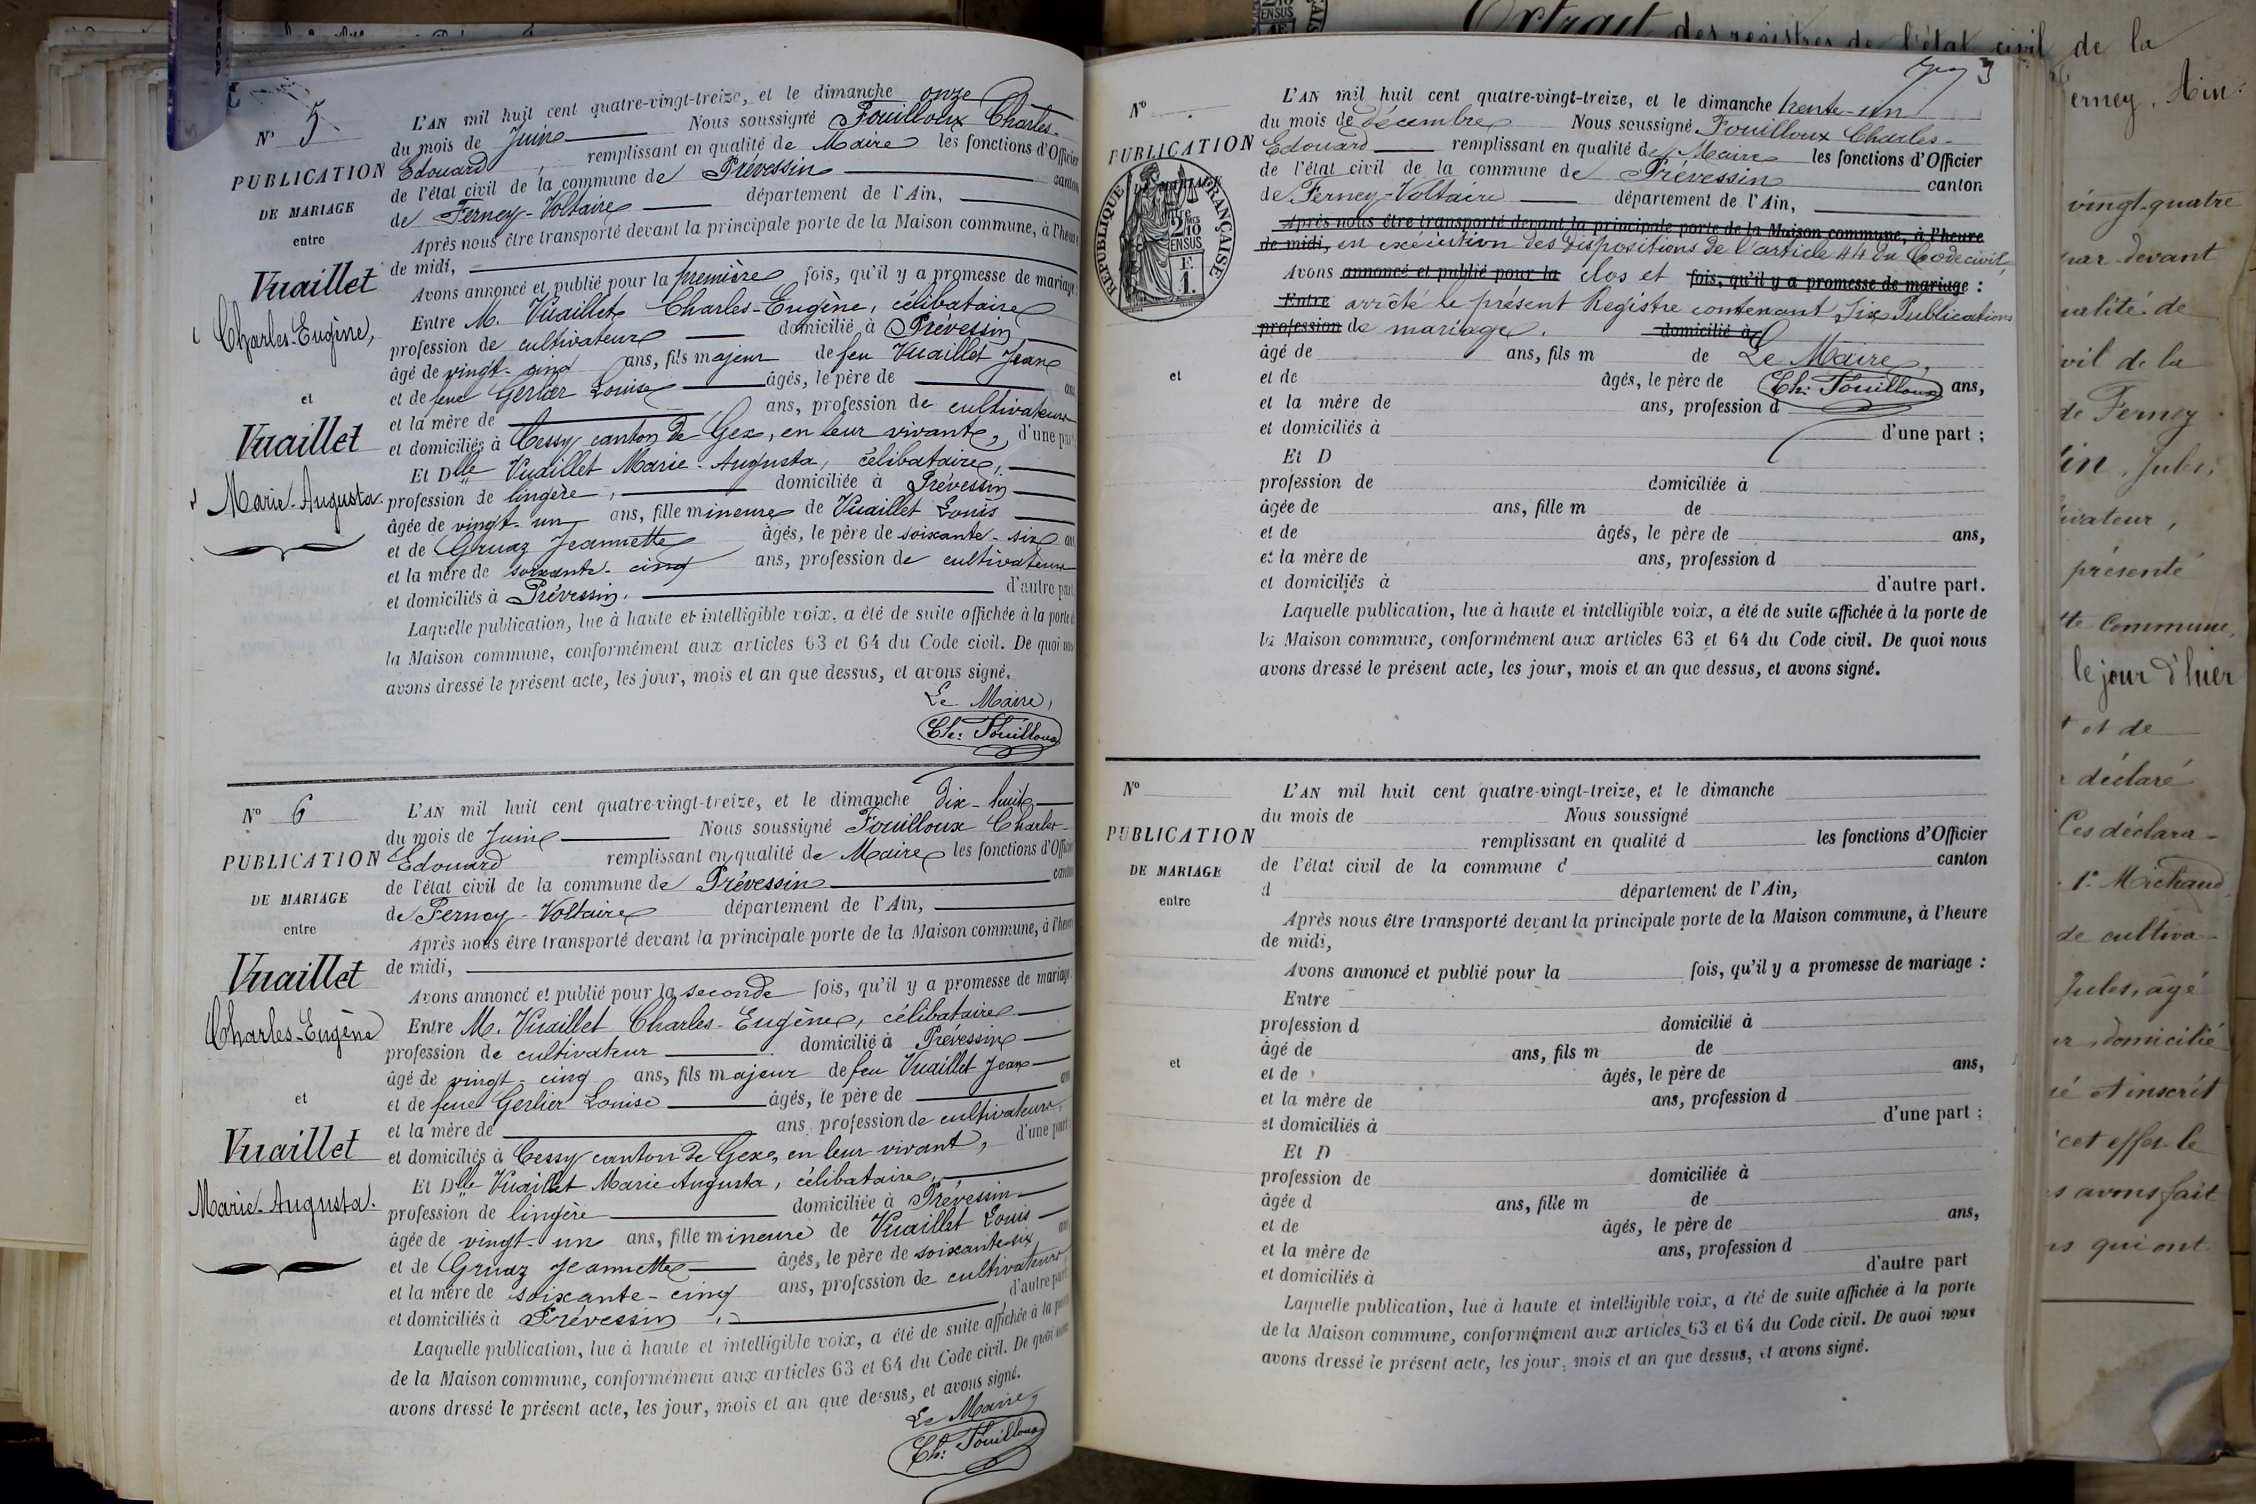 N° 5
PUBLICATION
DE MARIAGE
entre
Vuaillet
Charles-Eugène,
et
Vuaillet
Marie-Augusta.
L'AN mil huit cent quatre-vingt-treize, et le dimanche onze
du mois de Juin Nous soussigné Fouilloux Charles-
Edouard remplissant en qualité de Maire les fonctions d'Officier
de l'état civil de la commune de Prévessin canton
de Ferney-Voltaire département de l'Ain,
Après nous être transporté devant la principale porte de la Maison commune, à l'heure
de midi,
Avons annoncé et publié pour la première fois, qu'il y a promesse de mariage :
Entre M. Vuaillet Charles-Eugène, célibataire
profession de cultivateur domicilié à Prévessin
âgé de vingt-cinq ans, fils majeur de feu Vuaillet Jean
et de feue Gerlier Louise âgés, le père de ans
et la mère de ans, profession de cultivateurs
et domiciliés à Cessy canton de Gex, en leur vivant, d'une part
Et Dlle Vuaillet Marie-Augusta, célibataire,
profession de lingère, domiciliée à Prévessin
âgée de vingt-un ans, fille mineure de Vuaillet Louis
et de Gruaz Jeannette âgés, le père de soixante-six ans
et la mère de soixante-cinq ans, profession de cultivateurs
et domiciliés à Prévessin. d'autre part.
Laquelle publication, lue à haute et intelligible voix, a été de suite affichée à la porte de
la Maison commune, conformément aux articles 63 et 64 du Code civil. De quoi nous
avons dressé le présent acte, les jour, mois et an que dessus, et avons signé.
Le Maire,
Ch: Fouilloux
N° 6
PUBLICATION
DE MARIAGE
entre
Vuaillet
Charles-Eugène
et
Vuaillet
Marie-Augusta.
L'AN mil huit cent quatre-vingt-treize, et le dimanche dix-huit
du mois de Juin Nous soussigné Fouilloux Charles-
Edouard remplissant en qualité de Maire les fonctions d'Officier
de l'état civil de la commune de Prévessin canton
de Ferney-Voltaire département de l'Ain,
Après nous être transporté devant la principale porte de la Maison commune, à l'heure
de midi,
Avons annoncé et publié pour la seconde fois, qu'il y a promesse de mariage
Entre M. Vuaillet Charles-Eugène, célibataire
profession de cultivateur domicilié à Prévessin
âgé de vingt-cinq ans, fils majeur de feu Vuaillet Jean
et de feue Gerlier Louise âgés, le père de ans
et la mère de ans, profession de cultivateurs,
et domiciliés à Cessy canton de Gex, en leur vivant, d'une part
Et Dlle Vuaillet Marie Augusta, célibataire,
profession de lingère domiciliée à Prévessin
âgée de vingt-un ans, fille mineure de Vuaillet Louis
et de Gruaz Jeannette âgés, le père de soixante-six ans
et la mère de soixante-cinq ans, profession de cultivateurs
et domiciliés à Prévessin. d'autre part
Laquelle publication, lue à haute et intelligible voix, a été de suite affichée à la porte
de la Maison commune, conformément aux articles 63 et 64 du Code civil. De quoi nous
avons dressé le présent acte, les jour, mois et an que dessus, et avons signé.
Le Maire,
Ch: Fouilloux
3
N°
PUBLICATION
DE MARIAGE
RÉPUBLIQUE FRANÇAISE
2/10
EN SUS
1 F.
et
L'AN mil huit cent quatre-vingt-treize, et le dimanche trente-un
du mois de décembre Nous soussigné Fouilloux Charles-
Edouard remplissant en qualité de Maire les fonctions d'Officier
de l'état civil de la commune de Prévessin canton
de Ferney-Voltaire département de l'Ain,
Après nous être transporté devant la principale porte de la Maison commune, à l'heure
de midi, en exécution des dispositions de l'article 44 du Code civil,
Avons annoncé et publié pour la clos et fois, qu'il y a promesse de mariage :
Entre arrêté le présent Registre contenant Six Publications
profession de mariage. domicilié à
âgé de ans, fils m de Le Maire,
et de âgés, le père de Ch: Fouilloux ans,
et la mère de ans, profession d
et domiciliés à d'une part ;
Et D
profession de domiciliée à
âgée de ans, fille m de
et de âgés, le père de ans,
et la mère de ans, profession d
et domiciliés à d'autre part.
Laquelle publication, lue à haute et intelligible voix, a été de suite affichée à la porte de
la Maison commune, conformément aux articles 63 et 64 du Code civil. De quoi nous
avons dressé le présent acte, les jour, mois et an que dessus, et avons signé.
N°
PUBLICATION
DE MARIAGE
entre
et
L'AN mil huit cent quatre-vingt-treize, et le dimanche
du mois de Nous soussigné
remplissant en qualité d les fonctions d'Officier
de l'état civil de la commune d canton
d département de l'Ain,
Après nous être transporté devant la principale porte de la Maison commune, à l'heure
de midi,
Avons annoncé et publié pour la fois, qu'il y a promesse de mariage :
Entre
profession d domicilié à
âgé de ans, fils m de
et de âgés, le père de ans,
et la mère de ans, profession d
et domiciliés à d'une part ;
Et D
profession de domiciliée à
âgée d ans, fille m de
et de âgés, le père de ans,
et la mère de ans, profession d
et domiciliés à d'autre part
Laquelle publication, lue à haute et intelligible voix, a été de suite affichée à la porte
de la Maison commune, conformément aux articles 63 et 64 du Code civil. De quoi nous
avons dressé le présent acte, les jour, mois et an que dessus, et avons signé.
Extrait des registres de l'état civil de la
erney, Ain:
vingt-quatre
par-devant
ualité de
ivil de la
de Ferney
in, Jules,
ivateur,
présenté
tte commune,
le jour d'hier
t et de
déclaré
Ces déclara-
1° Michaud
de cultiva-
Jules, âgé
domicilié
é et inscrit
cet effet le
s avons fait
s qui ont